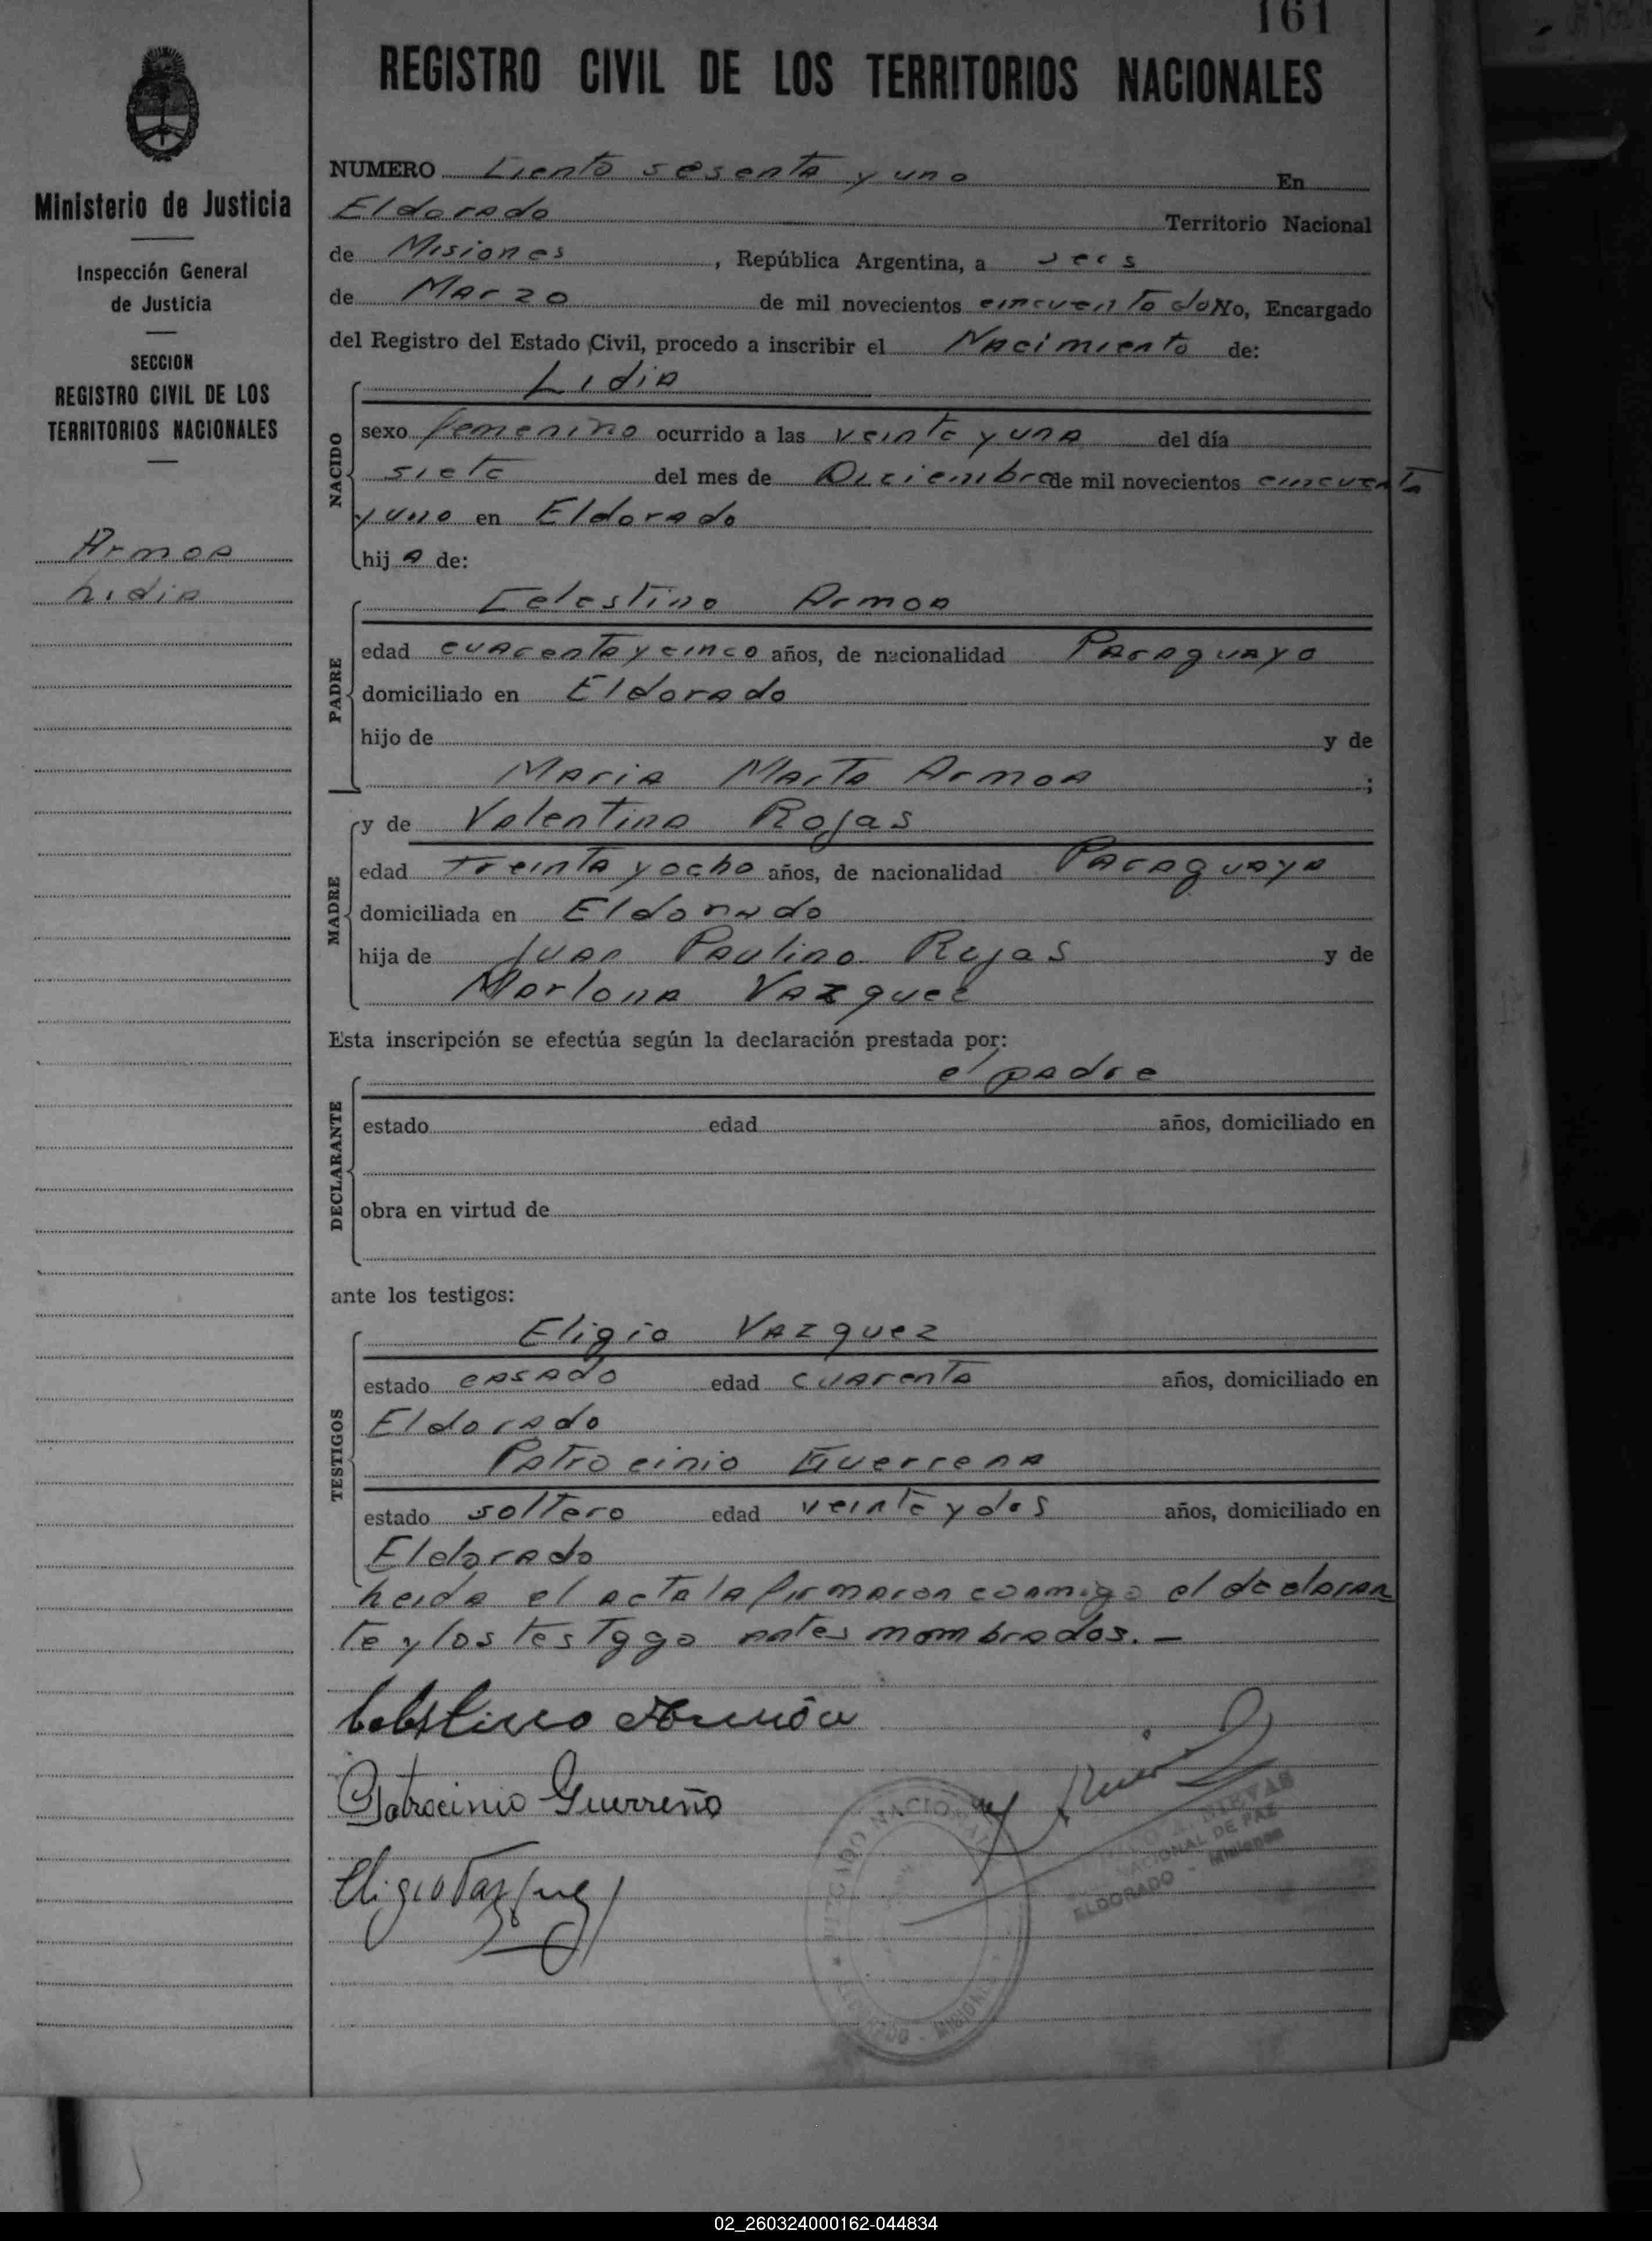 161
REGISTRO CIVIL DE LOS TERRITORIOS NACIONALES
Ministerio de Justicia
Inspección General
de Justicia
SECCION
REGISTRO CIVIL DE LOS
TERRITORIOS NACIONALES
Armoa
Lidia
NUMERO Ciento sesenta y uno En
Eldorado Territorio Nacional
de Misiones, República Argentina, a seis
de Marzo de mil novecientos cincuenta dos Yo, Encargado
del Registro del Estado Civil, procedo a inscribir el Nacimiento de:
NACIDO
Lidia
sexo femenino ocurrido a las veinte y una del día
siete del mes de Diciembre de mil novecientos cincuenta
y uno en Eldorado
hij a de:
PADRE
Celestino Armoa
edad cuarenta y cinco años, de nacionalidad Paraguayo
domiciliado en Eldorado
hijo de y de
Maria Marta Armoa ;
MADRE
y de Valentina Rojas
edad treinta y ocho años, de nacionalidad Paraguaya
domiciliada en Eldorado
hija de Juan Paulino Rojas y de
Marlona Vazquez
Esta inscripción se efectúa según la declaración prestada por:
DECLARANTE
el padre
estado edad años, domiciliado en
obra en virtud de
ante los testigos:
TESTIGOS
Eligio Vazquez
estado casado edad cuarenta años, domiciliado en
Eldorado
Patrocinio Guerrena
estado soltero edad veinte y dos años, domiciliado en
Eldorado
Leida el acta la firmaron conmigo el declaran
te y los testggo antes mombrados. -
Celestino Armóa
Patrocinio Guerreño
Eligio Vazquez
NACIONAL
ELDORADO - MISIONES
NIEVAS
NACIONAL DE PAZ
ELDORADO - Misiones
02_260324000162-044834